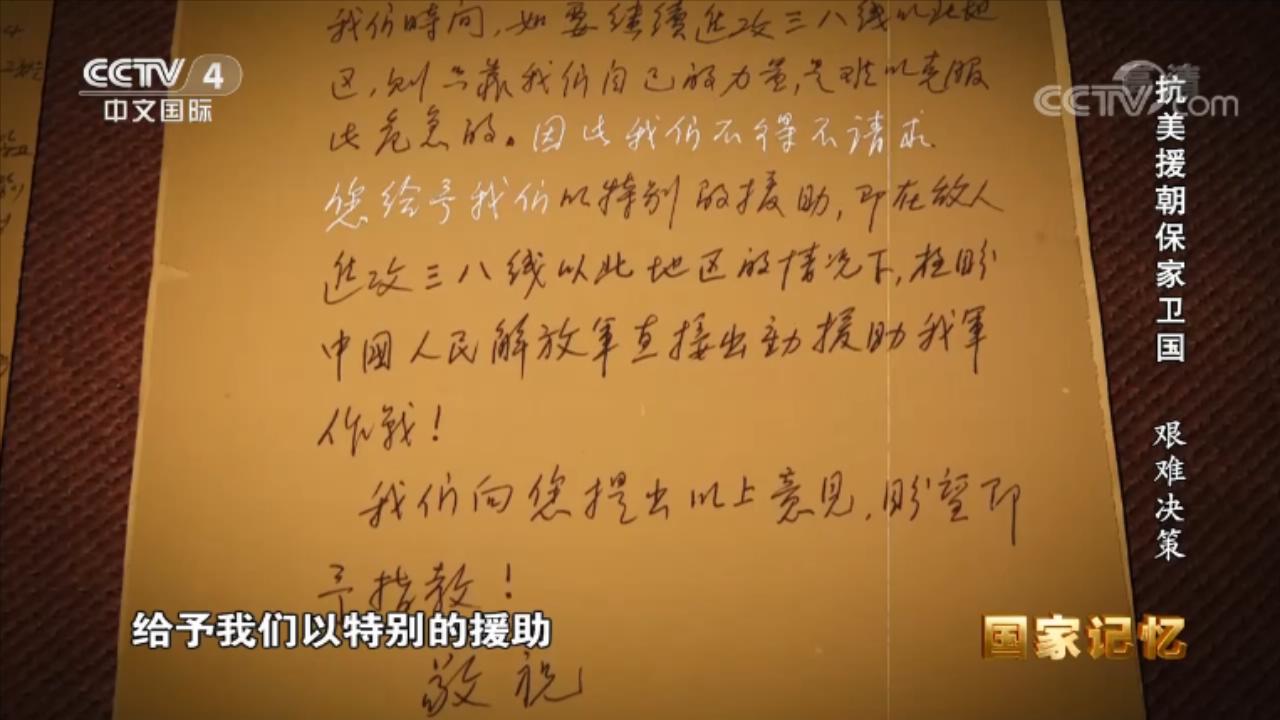 我们時间，如要继續进攻三八线以北地
区，则只靠我们自己的力量，是难以克服
此危急的。因此我们不得不请求
您给予我们以特别的援助，即在敌人
进攻三八线以北地区的情况下，极盼
中國人民解放軍直接出动援助我軍
作战！
我们向您提出以上意见，盼望即
予指教！
敬祝
CCTV 4
中文国际
高清
CCTV.com
抗美援朝保家卫国 艰难决策
给予我们以特别的援助
国家记忆